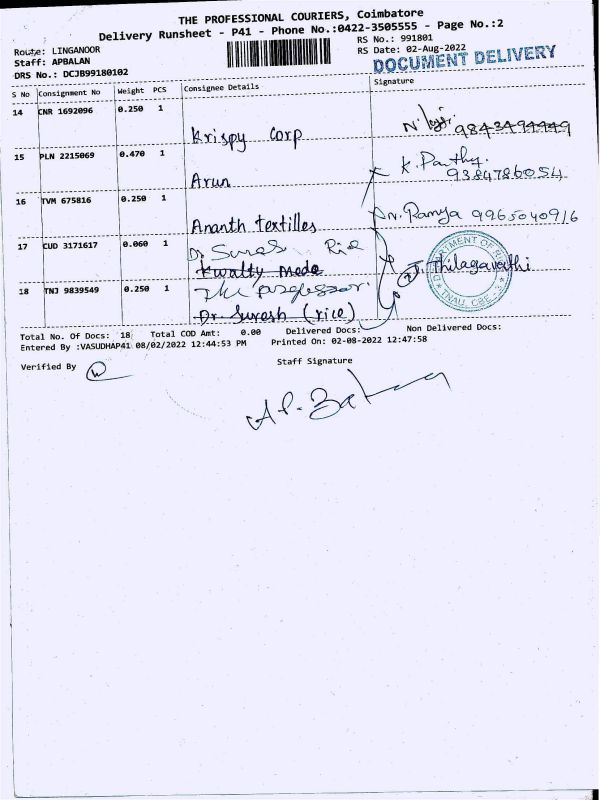 THE PROFESSIONAL COURIERS, Coimbatore
Delivery Runsheet - P41 - Phone No.:0422-3505555 - Page No.:2
Route: LINGANOOR
RS No.: 991801
Staff: APBALAN
RS Date: 02-Aug-2022
DRS No.: DCJB99180102
DOCUMENT DELIVERY
S No Consignment No Weight PCS Consignee Details Signature
14 CNR 1692096 0.250 1
Krispy Corp 9843494449
15 PLN 2215069 0.470 1
Arun K. Parthy. 9384786054
16 TVM 675816 0.250 1
Ananth textilles Ramya 9965040916
17 CUD 3171617 0.060 1
Dr Sures Rice
Kwalty mede
J. Thilagavathi
DEPARTMENT OF
TNAU, CBE - 3
18 TNJ 9839549 0.250 1
The professor
Dr Suresh (rice)
Total No. Of Docs: 18 Total COD Amt: 0.00 Delivered Docs: Non Delivered Docs:
Entered By :VASUDHAP41 08/02/2022 12:44:53 PM Printed On: 02-08-2022 12:47:58
Verified By
Staff Signature
AP. Balan